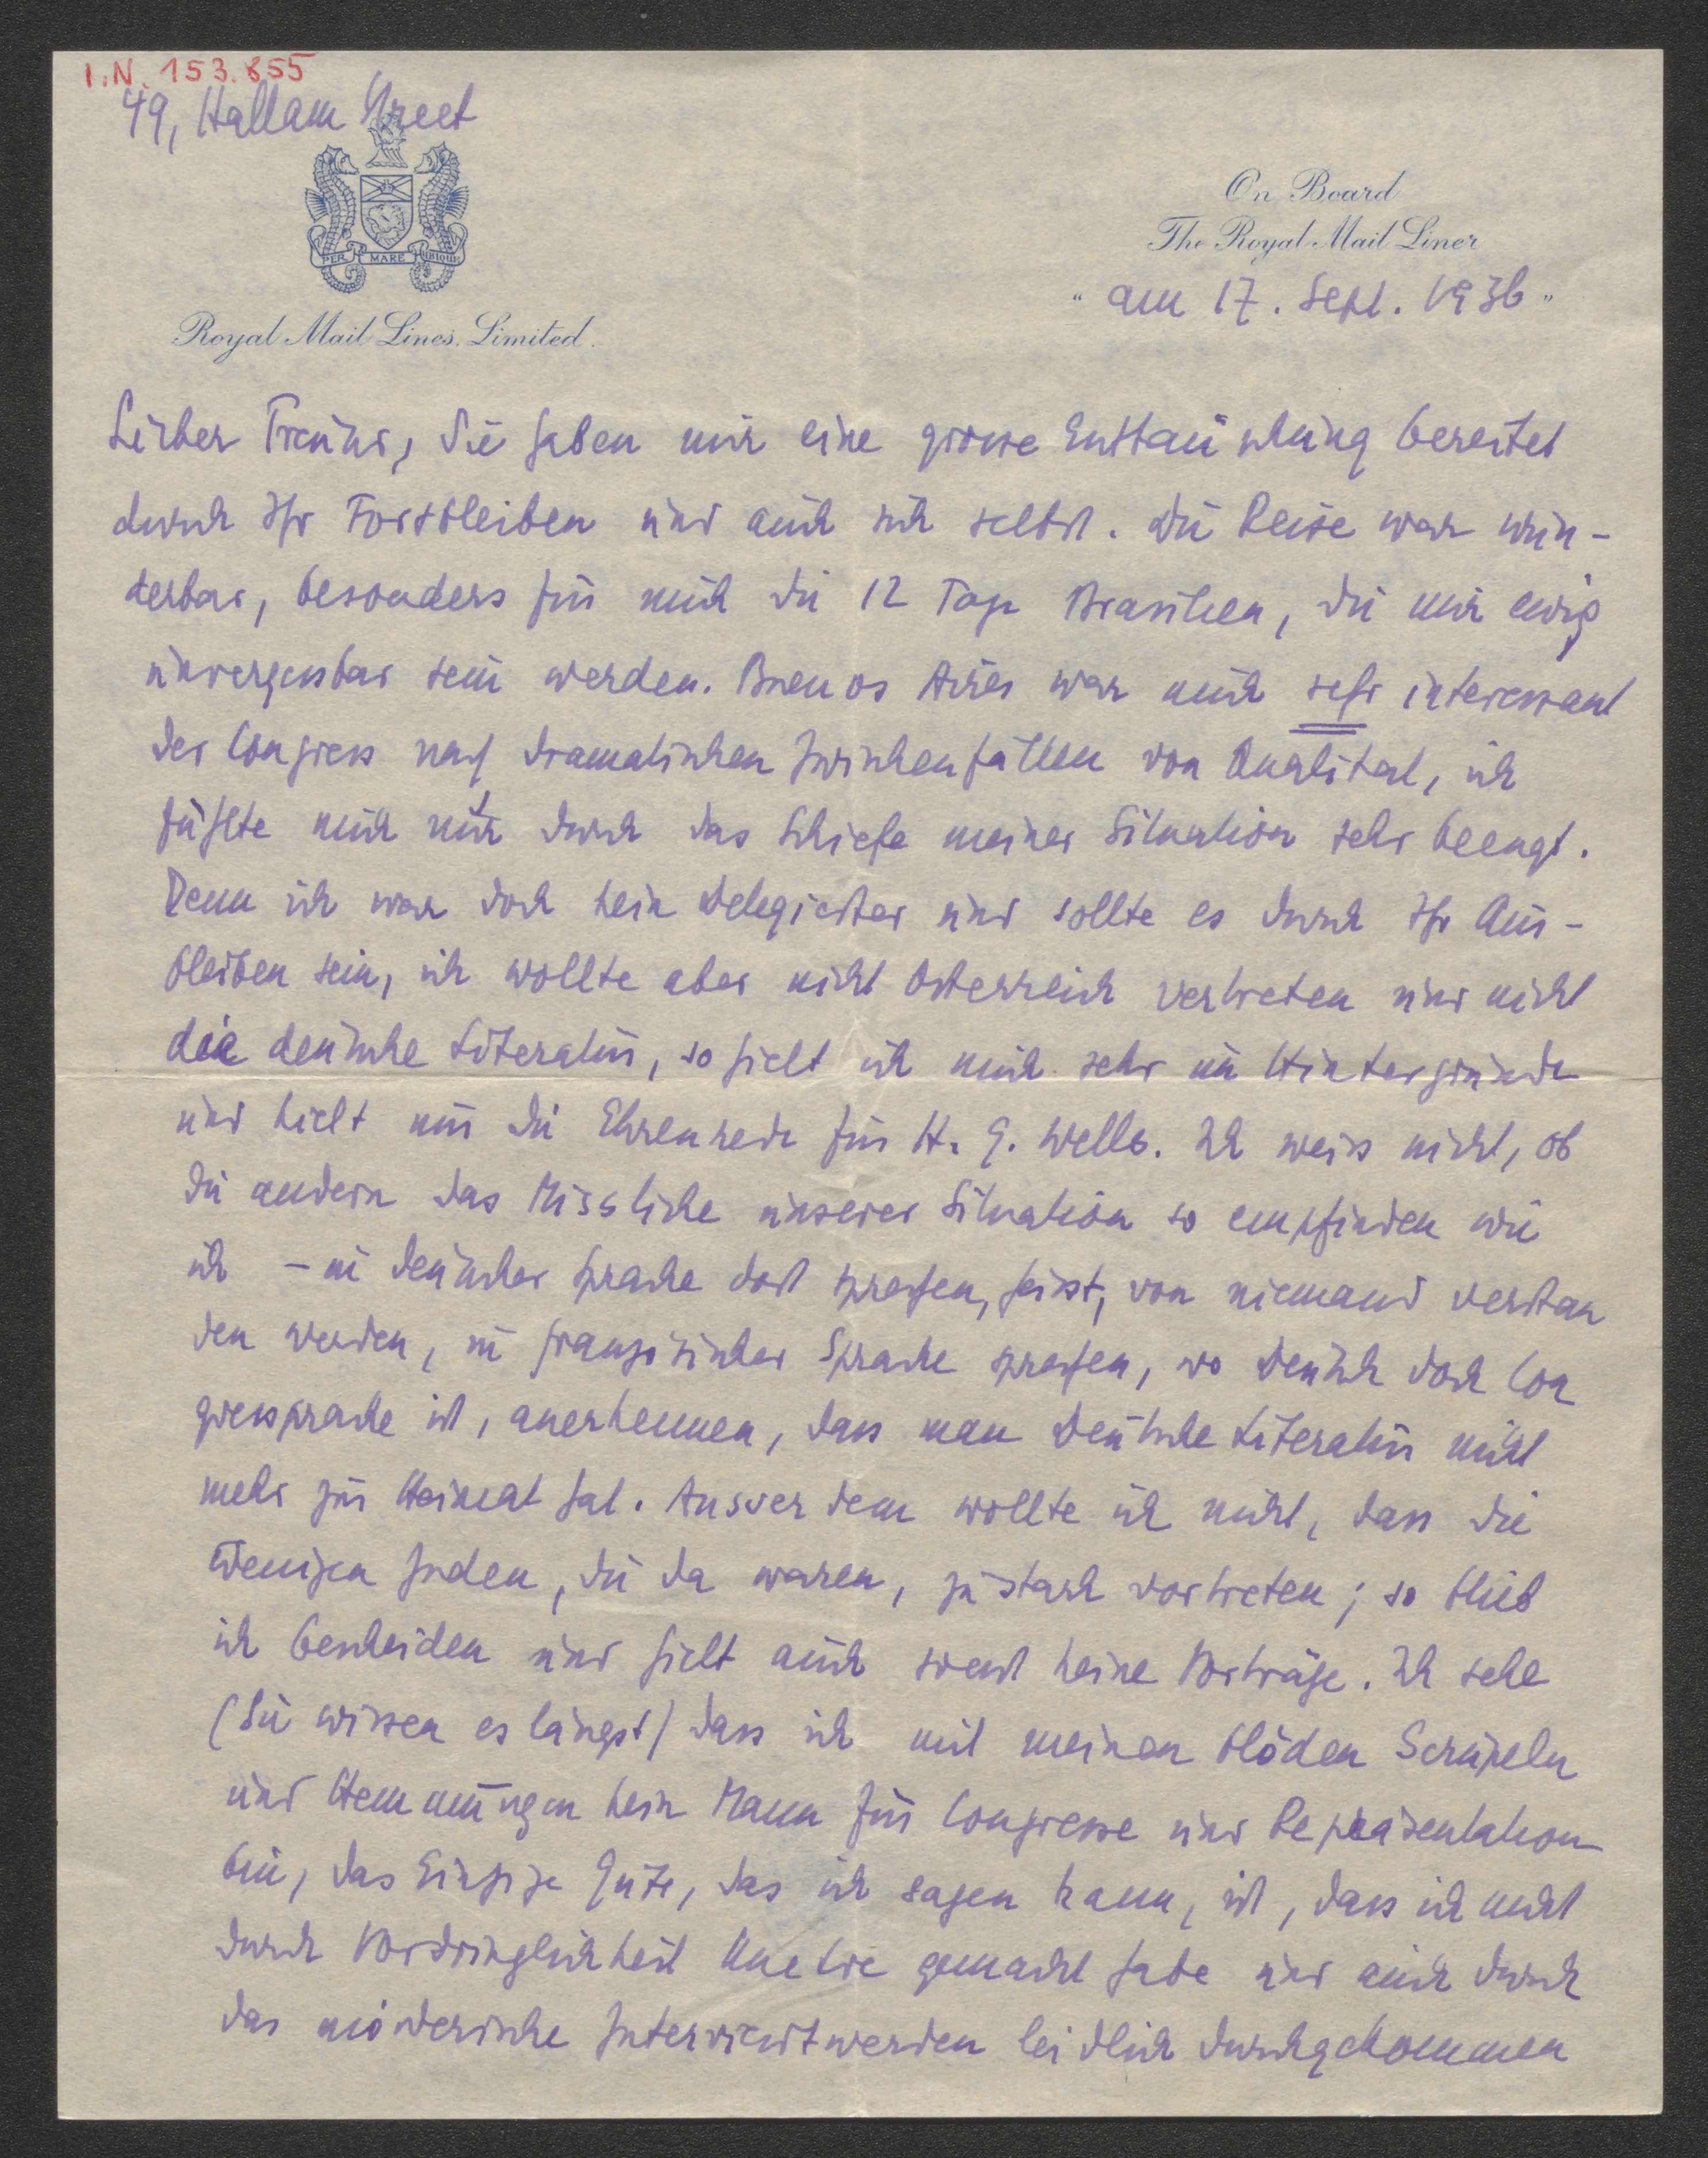 I.N. 153.855
49, Hallam Street
PER MARE UBIQUE
Royal Mail Lines, Limited.
On Board
The Royal Mail Liner
" am 17. Sept. 1936 "
Lieber Freund, Sie haben mir eine grosse Enttäuschung bereitet
durch Ihr Fortbleiben und auch sich selbst. Die Reise war wun-
derbar, besonders für mich die 12 Tage Brasilien, die mir ewig
unvergessbar sein werden. Buenos Aires war mir sehr interessant
der Congress nach dramatischen Zwischenfällen von Qualität, ich
fühlte mich nur durch das Schiefe meiner Situation sehr beengt.
Denn ich war doch kein Delegierter und sollte es durch Ihr Aus-
bleiben sein, ich wollte aber nicht Österreich vertreten und nicht
die deutsche Literatur, so hielt ich mich sehr im Hintergrunde
und hielt nur die Ehrenrede für H. G. Wells. Ich weiss nicht, ob
die andern das Missliche unserer Situation so empfinden wie
ich – in deutscher Sprache dort sprechen, heisst, von niemand verstan
den werden, in französischer Sprache sprechen, wo Deutsch doch Con
gresssprache ist, anerkennen, dass man deutsche Literatur nicht
mehr zur Heimat hat. Ausserdem wollte ich nicht, dass die
wenigen Juden, die da waren, zu stark vortreten; so blieb
ich bescheiden und hielt auch sonst keine Vorträge. Ich sehe
(Sie wissen es längst) dass ich mit meinen blöden Scrupeln
und Hemmungen kein Mann für Congresse und Repräsentation
bin, das Einzige Gute, das ich sagen kann, ist, dass ich nicht
durch Vordringlichkeit gemacht habe und auch durch
das mörderische Interviewtwerden leidlich durchgekommen